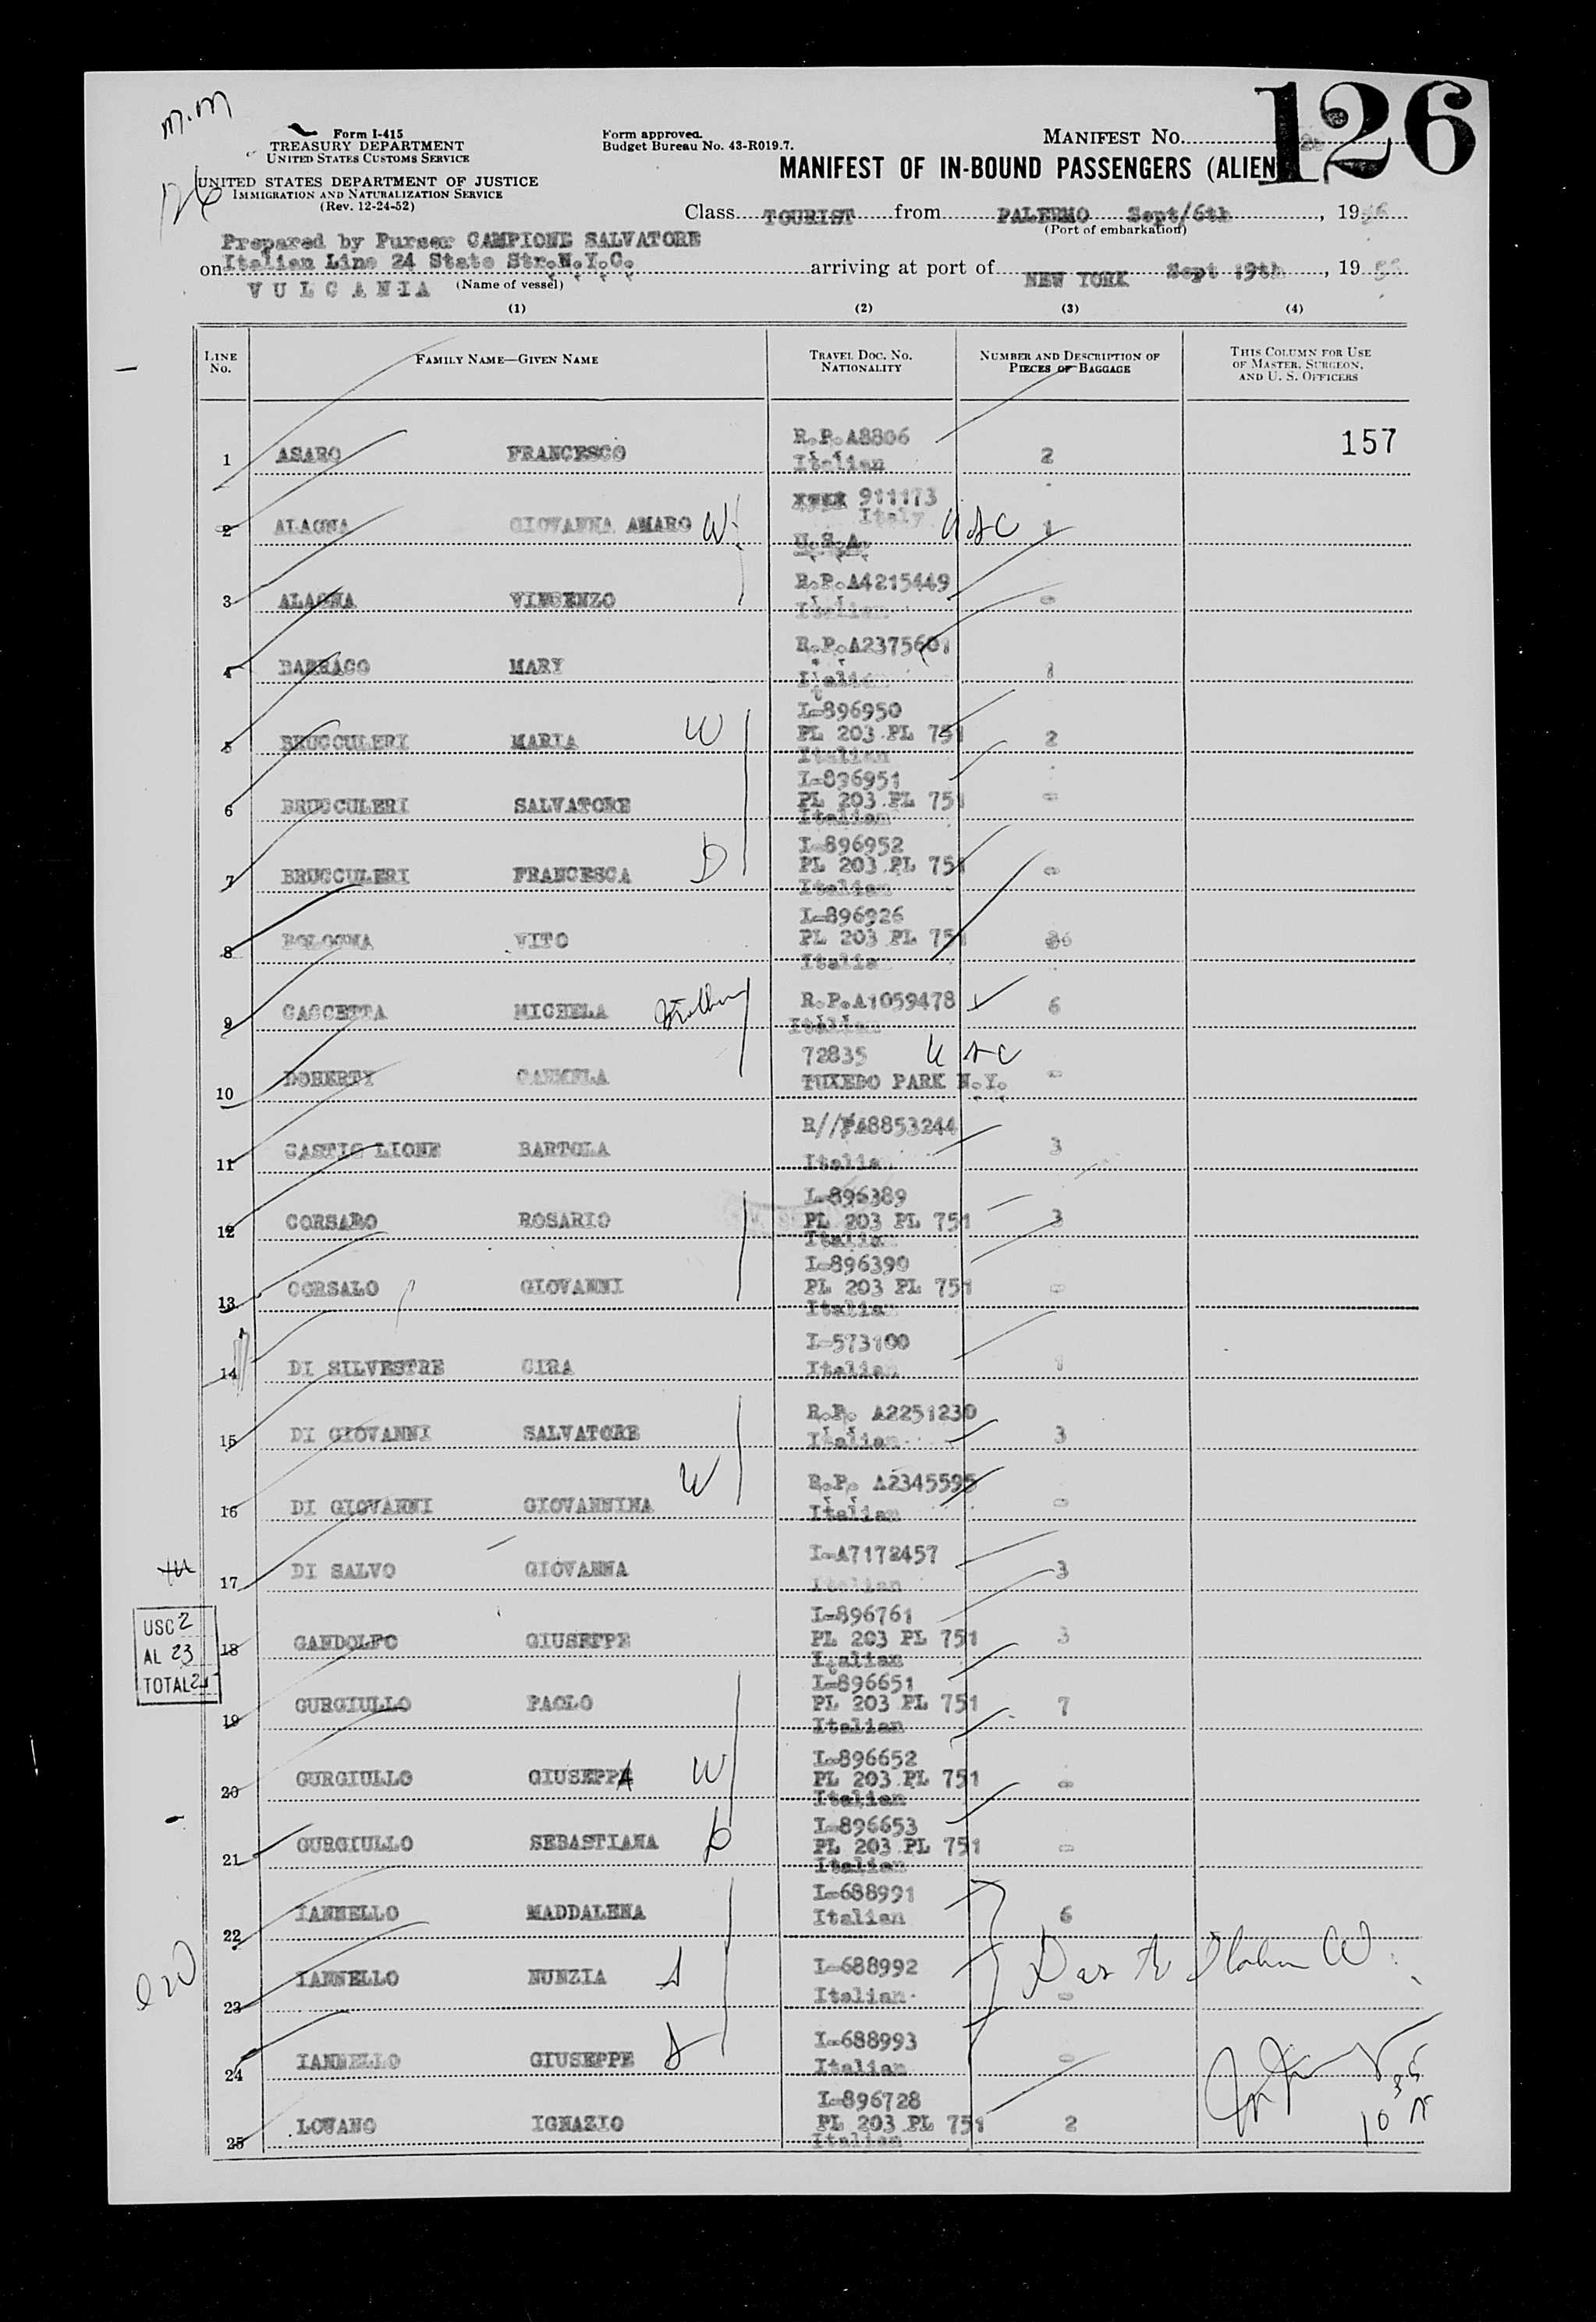 m.m
126
Form I-415
TREASURY DEPARTMENT
UNITED STATES CUSTOMS SERVICE
UNITED STATES DEPARTMENT OF JUSTICE
IMMIGRATION AND NATURALIZATION SERVICE
(Rev. 12-24-52)
126
Form approved.
Budget Bureau No. 43-R019.7.
MANIFEST No.
MANIFEST OF IN-BOUND PASSENGERS (ALIEN
Class TOURIST from PALERMO Sept/6th, 1956
(Port of embarkation)
Prepared by Purser CAMPIONE SALVATORE
on Italian Line 24 State Str.N.Y.C. arriving at port of NEW YORK Sept 19th, 1956
VULCANIA (Name of vessel)
(1) (2) (3) (4)
LINE No. FAMILY NAME—GIVEN NAME TRAVEL DOC. NO. NATIONALITY NUMBER AND DESCRIPTION OF PIECES OF BAGGAGE THIS COLUMN FOR USE OF MASTER, SURGEON, AND U. S. OFFICERS
157
1 ASARO FRANCESCO R.P.A8806 Italian 2
2 ALAGNA GIOVANNA AMARO W 911173 Italy U.S.A. USC 1
3 ALAGNA VINCENZO R.P.A4215449 Italian -
4 BARRACO MARY R.P.A2375601 Italian 1
5 BRUCCULERI MARIA W I-896950 PL 203 PL 751 Italian 2
6 BRUCCULERI SALVATORE I-896951 PL 203 PL 751 Italian -
7 BRUCCULERI FRANCESCA D I-896952 PL 203 PL 751 Italian -
8 BOLOGNA VITO I-896926 PL 203 PL 751 Italia
9 CASCETTA MICHELA R.P.A1059478 Italian 6
10 DOHERTY CARMELA 72835 USC TUXEDO PARK N.Y. -
11 CASTIG LIONE BARTOLA R//PA8853244 Italia 3
12 CORSARO ROSARIO I-896389 PL 203 PL 751 Italia 3
13 CORSALO GIOVANNI I-896390 PL 203 PL 751 Italia -
14 DI SILVESTRE CIRA I-573100 Italian 1
15 DI GIOVANNI SALVATORE R.P. A2251230 Italian 3
16 DI GIOVANNI GIOVANNINA W R.P. A2345595 Italian -
17 DI SALVO GIOVANNA I-A7172457 Italian 3
USC 2
AL 23
TOTAL 25
18 GANDOLFO GIUSEPPE I-896761 PL 203 PL 751 Italian 3
19 GURGIULLO PAOLO I-896651 PL 203 PL 751 Italian 7
20 GURGIULLO GIUSEPPA W I-896652 PL 203 PL 751 Italian -
21 GURGIULLO SEBASTIANA D I-896653 PL 203 PL 751 Italian -
22 IANNELLO MADDALENA I-688991 Italian 6
23 IANNELLO NUNZIA S I-688992 Italian -
24 IANNELLO GIUSEPPE S I-688993 Italian -
25 LOVANO IGNAZIO I-896728 PL 203 PL 751 Italian 2